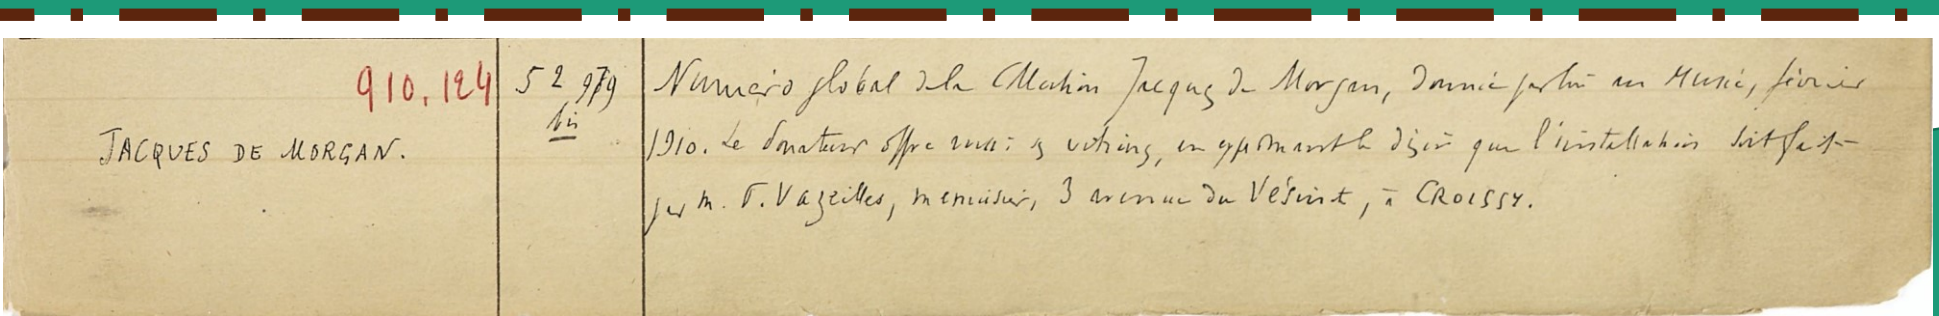 910.124
52 979
bis
JACQUES DE MORGAN.
Numéro global de la Collection Jacques de Morgan, donnée par lui au Musée, février
1910. Le donateur offre aussi les vitrines, en exprimant le désir que l'installation soit faite
par M. F. Vazeilles, menuisier, 3 avenue du Vésinet, à CROISSY.